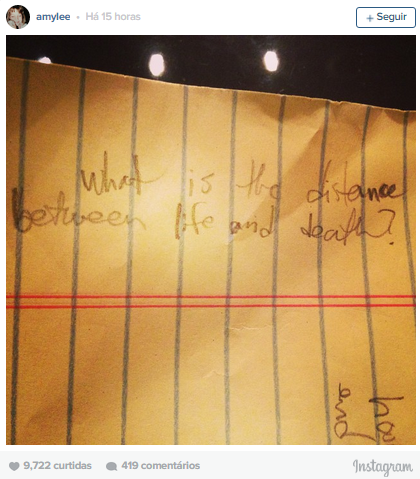 amylee • Há 15 horas
+ Seguir
What is the distance
between life and death?
and
9,722 curtidas 419 comentários
Instagram